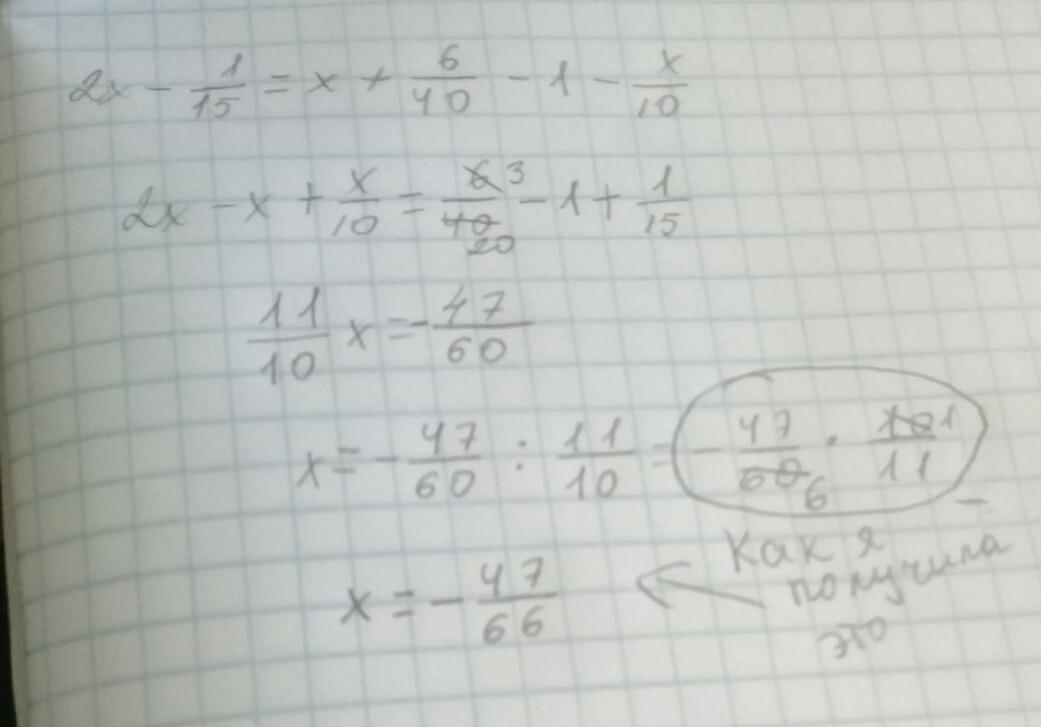 2x - 1/15 = x + 6/40 - 1 - x/10
2x - x + x/10 = 6 3/40 20 - 1 + 1/15
11/10 x = - 47/60
x = - 47/60 : 11/10 = - 47/60 6 · 10 1/11
x = - 47/66
Как я
получила
это